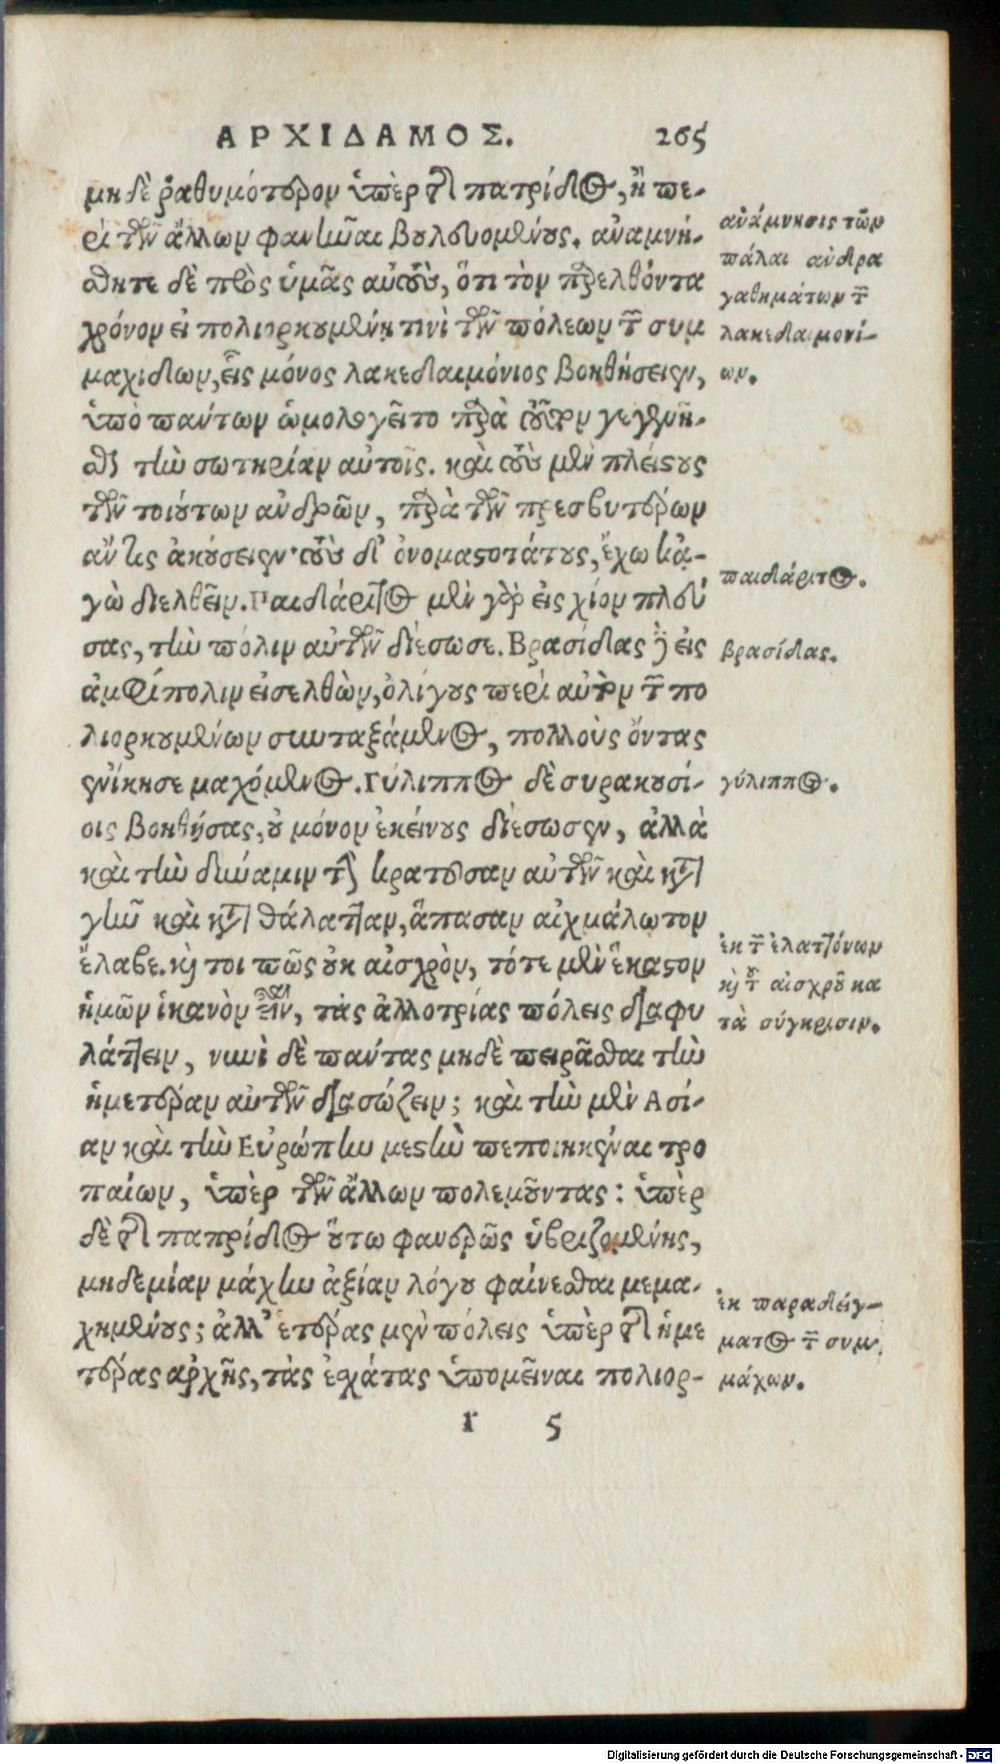 ΑΡΧΙΔΑΜΟΣ. 265
μηδὲ ῥαθυμότερον ὑπὲρ τῆς πατρίδος, ἢ πε-
ρὶ τῶν ἄλλων φανῆναι βουλευομένους. ἀναμνή-
σθητε δὲ πρὸς ὑμᾶς αὐτοὺς, ὅτι τὸν παρελθόντα
χρόνον εἰ πολιορκουμένῃ τινὶ τῶν πόλεων τῶν συμ
μαχίδων, εἷς μόνος λακεδαιμόνιος βοηθήσειεν,
ὑπὸ πάντων ὡμολογεῖτο παρὰ τοῦτον γεγενῆ-
σθαι τὴν σωτηρίαν αὐτοῖς. καὶ τοὺς μὲν πλείστους
τῶν τοιούτων ἀνδρῶν, παρὰ τῶν πρεσβυτέρων
ἄν τις ἀκούσειεν· τοὺς δ' ὀνομαστοτάτους, ἔχω κἀ-
γὼ διελθεῖν. Παιδάριτος μὲν γὰρ εἰς χίον πλεύ
σας, τὴν πόλιν αὐτῶν διέσωσε. Βρασίδας δὲ εἰς
ἀμφίπολιν εἰσελθὼν, ὀλίγους περὶ αὐτὸν τῶν πο
λιορκουμένων συνταξάμενος, πολλοὺς ὄντας
ἐνίκησε μαχόμενος. Γύλιππος δὲ συρακουσί-
οις βοηθήσας, οὐ μόνον ἐκείνους διέσωσεν, ἀλλὰ
καὶ τὴν δύναμιν τὴν κρατοῦσαν αὐτῶν καὶ κατὰ
γῆν καὶ κατὰ θάλατταν, ἅπασαν αἰχμάλωτον
ἔλαβε. καί τοι πῶς οὐκ αἰσχρὸν, τότε μὲν ἕκαστον
ἡμῶν ἱκανὸν εἶναι, τὰς ἀλλοτρίας πόλεις διαφυ
λάττειν, νυνὶ δὲ πάντας μηδὲ πειρᾶσθαι τὴν
ἡμετέραν αὐτῶν διασώζειν; καὶ τὴν μὲν Ασί-
αν καὶ τὴν Εὐρώπην μεστὴν πεποιηκέναι τρο
παίων, ὑπὲρ τῶν ἄλλων πολεμοῦντας: ὑπὲρ
δὲ τῆς παπρίδος οὕτω φανερῶς ὑβριζομένης,
μηδεμίαν μάχην ἀξίαν λόγου φαίνεσθαι μεμα-
χημένους; ἀλλ' ἑτέρας μὲν πόλεις ὑπὲρ τῆς ἡμε
τέρας ἀρχῆς, τὰς ἐσχάτας ὑπομεῖναι πολιορ-
r 5
ἀνάμνησις τῶν
πάλαι ἀνδρα
γαθημάτων τῶν
λακεδαιμονί-
ων.
παιδάριτος.
βρασίδας.
γύλιππος.
ἐκ τῶν ἐλαττόνων
καὶ τοῦ αἰσχροῦ κα
τὰ σύγκρισιν.
ἐκ παραδείγ-
ματος τῶν συμ
μάχων.
Digitalisierung gefördert durch die Deutsche Forschungsgemeinschaft - DFG